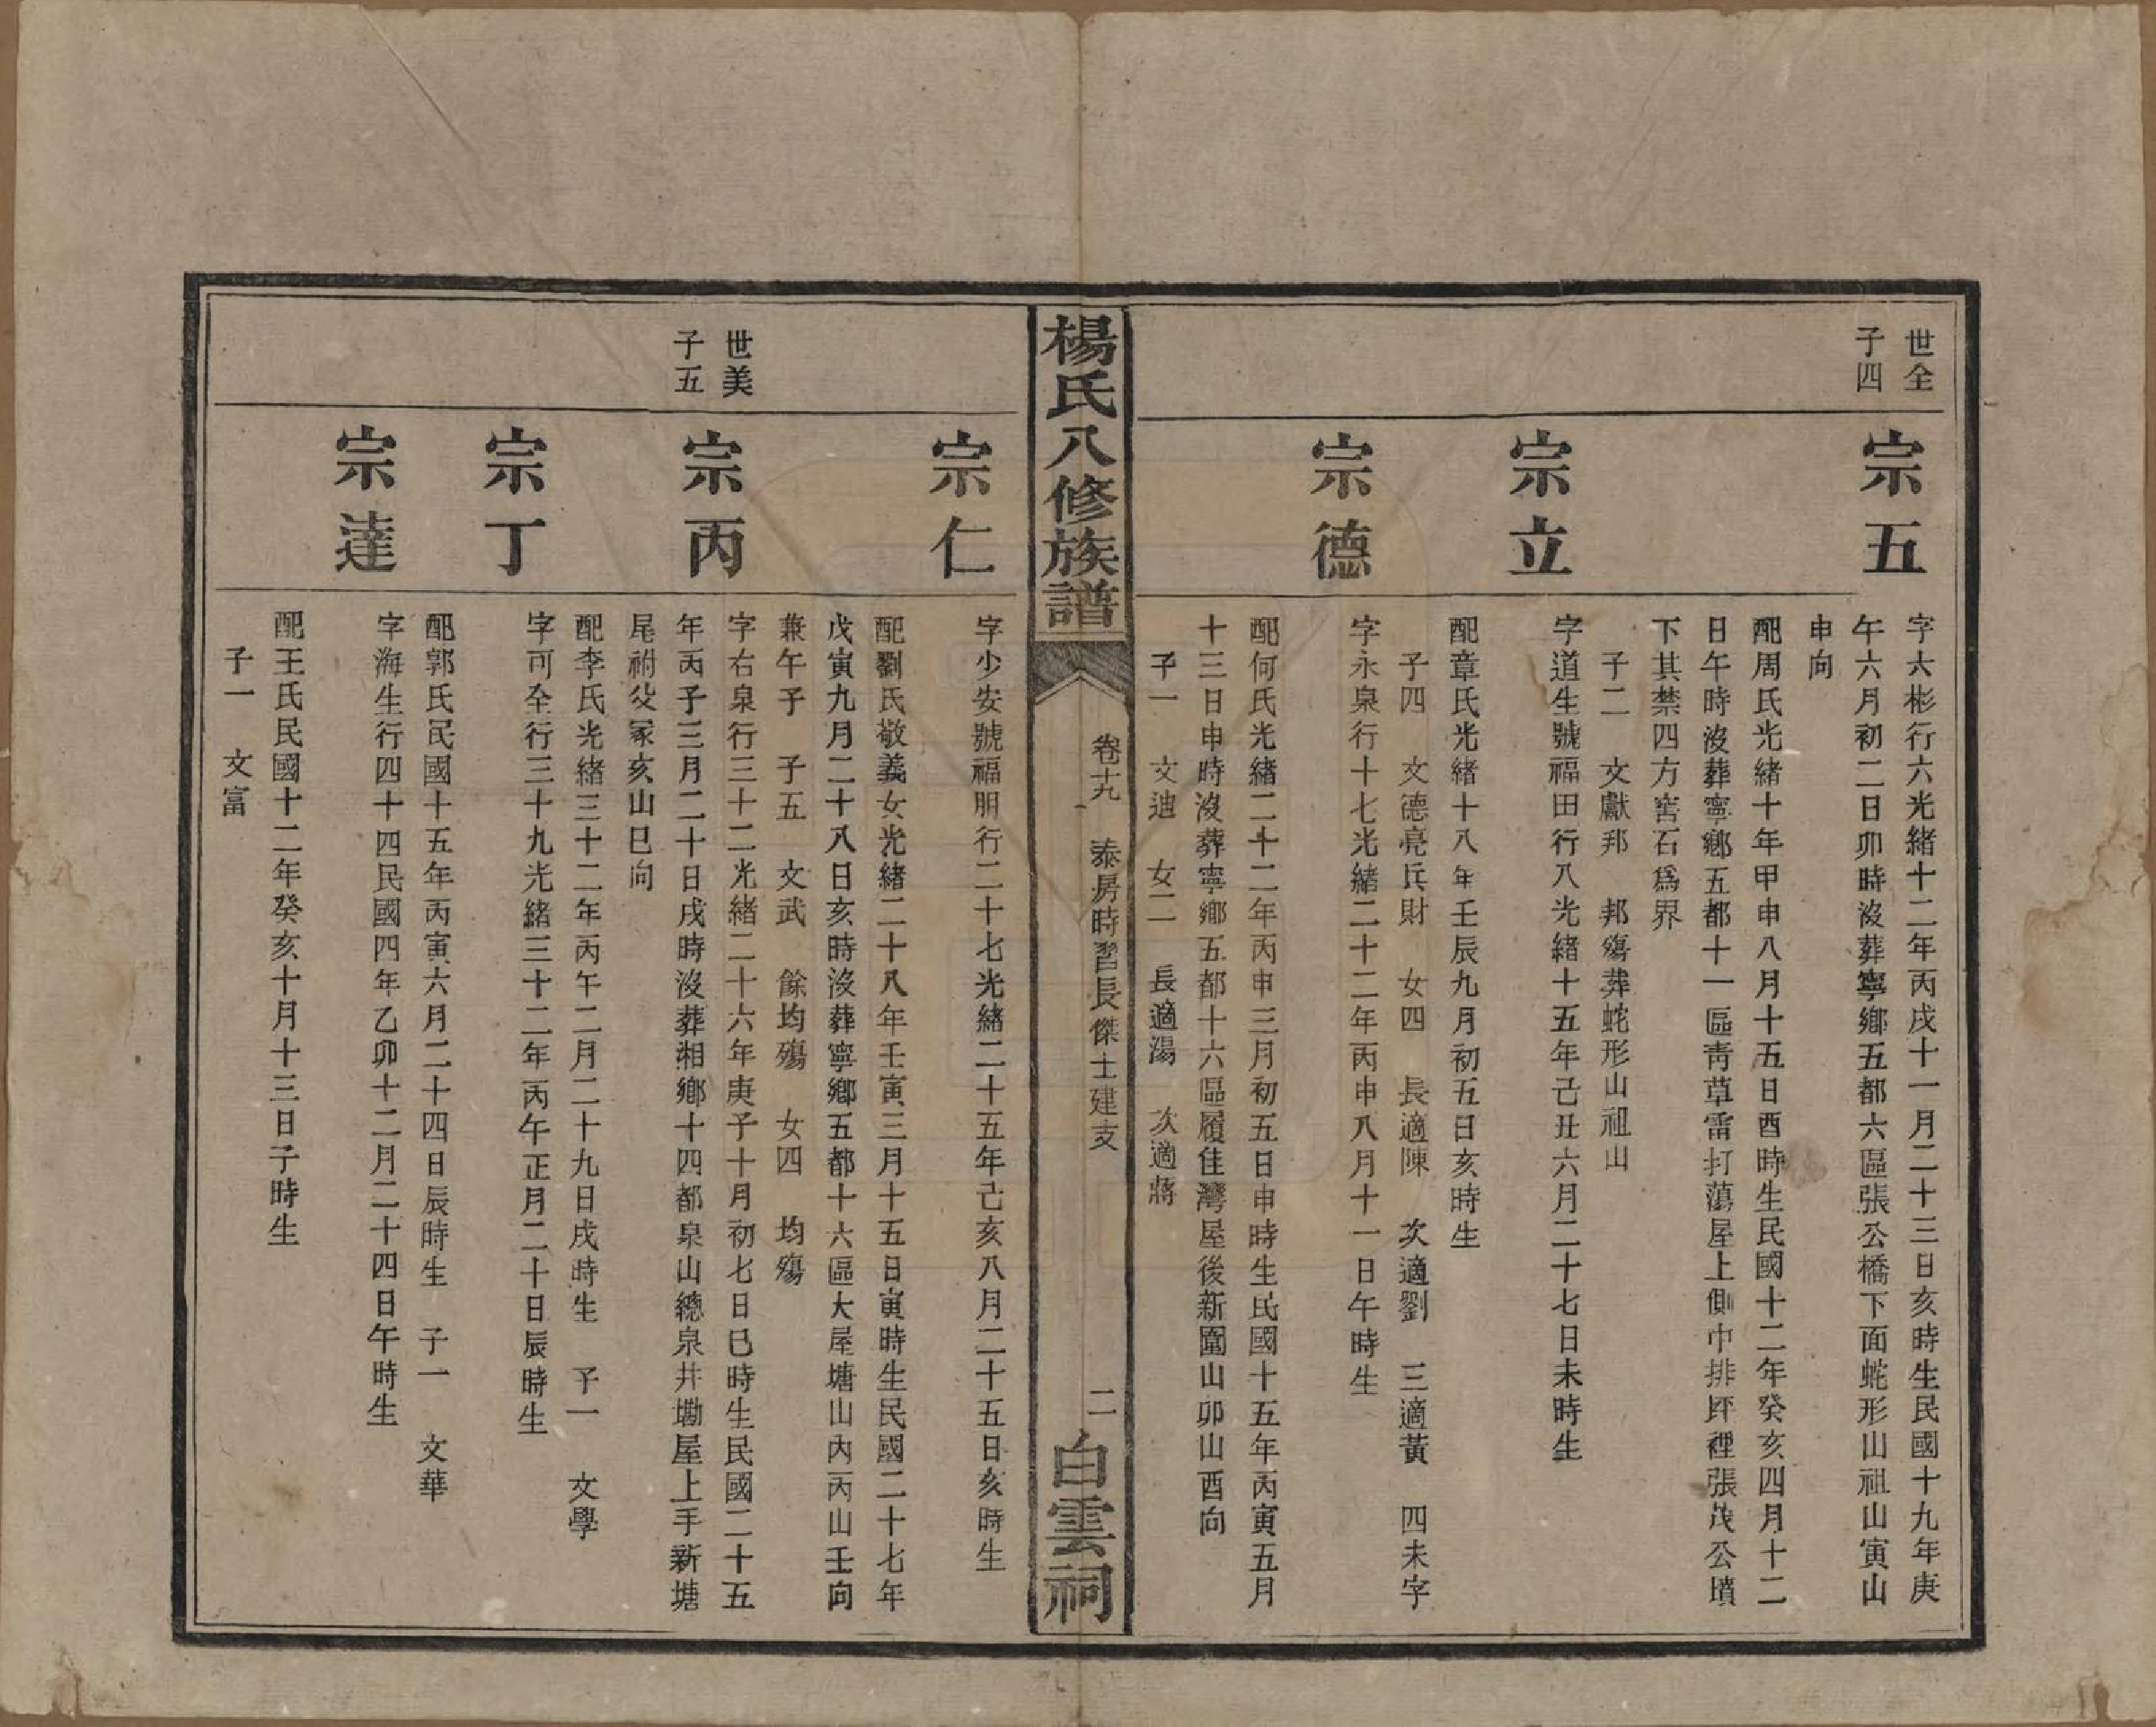 世全
子四
宗五
字大彬行六光緒十二年丙戌十一月二十三日亥時生民國十九年庚
午六月初二日卯時沒葬寧鄉五都六區張公橋下面蛇形山祖山寅山
申向
配周氏光緒十年甲申八月十五日酉時生民國十二年癸亥四月十二
日午時沒葬寧鄉五都十一區靑草雷打蕩屋上側中排坪裡張茂公墳
下其禁四方窖石爲界
子二 文獻邦 邦殤葬蛇形山祖山
宗立
字道生號福田行八光緒十五年己丑六月二十七日未時生
配章氏光緒十八年壬辰九月初五日亥時生
子四 文德亮兵財 女四 長適陳 次適劉 三適黃 四未字
宗德
字永泉行十七光緒二十二年丙申八月十一日午時生
配何氏光緒二十二年丙申三月初五日申時生民國十五年丙寅五月
十三日申時沒葬寧鄉五都十六區履佳灣屋後新圍山卯山酉向
子一 文迪 女二 長適湯 次適蔣
楊氏八修族譜
卷十九 泰房時習長傑士建支
二
白雲祠
宗仁
字少安號福朋行二十七光緒二十五年己亥八月二十五日亥時生
配劉氏敬義女光緒二十八年壬寅三月十五日寅時生民國二十七年
戊寅九月二十八日亥時沒葬寧鄉五都十六區大屋塘山內丙山壬向
兼午子 子五 文武 餘均殤 女四 均殤
世美
子五
宗丙
字右泉行三十二光緒二十六年庚子十月初七日巳時生民國二十五
年丙子三月二十日戌時沒葬湘鄉十四都泉山總泉井坳屋上手新塘
尾祔父冢亥山巳向
配李氏光緒三十二年丙午二月二十九日戌時生 子一 文學
宗丁
字可全行三十九光緒三十二年丙午正月二十日辰時生
配郭氏民國十五年丙寅六月二十四日辰時生 子一 文華
宗達
字海生行四十四民國四年乙卯十二月二十四日午時生
配王氏民國十二年癸亥十月十三日子時生
子一 文富